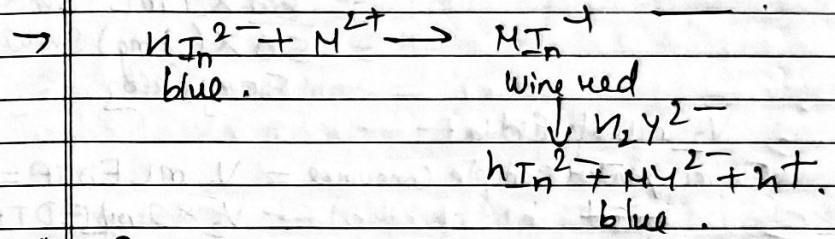 → HIn²⁻ + M²⁺ → MIn⁻
blue. wine red
↓ H₂Y²⁻
HIn²⁻ + MY²⁻ + H⁺.
blue.